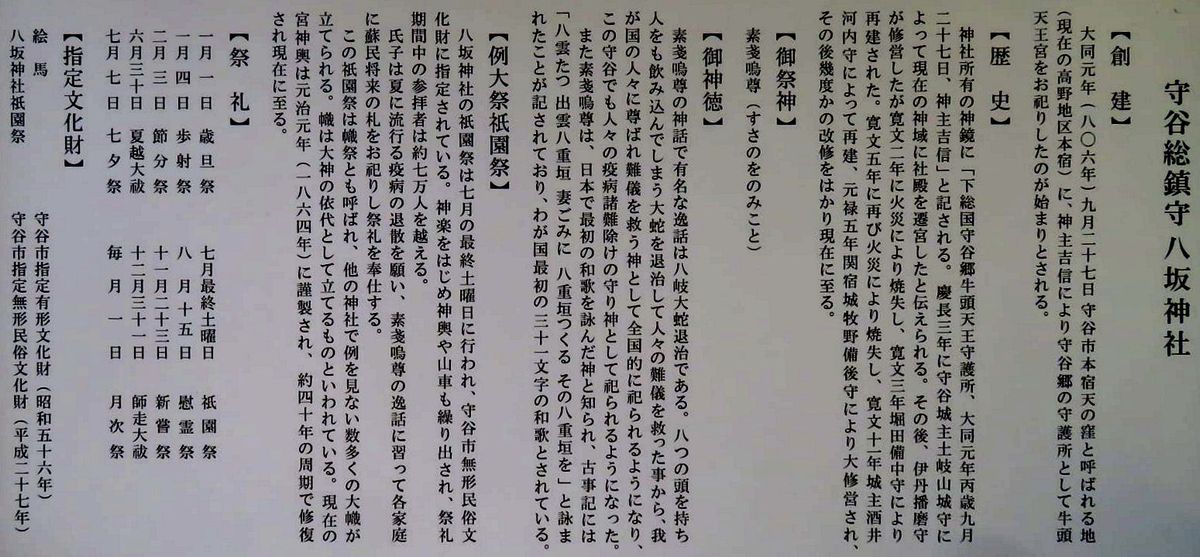 守谷総鎮守八坂神社
【創　建】
大同元年（八〇六年）九月二十七日 守谷市本宿天の窪と呼ばれる地
（現在の高野地区本宿）に、神主吉信により守谷郷の守護所として牛頭
天王宮をお祀りしたのが始まりとされる。
【歴　史】
神社所有の神鏡に「下総国守谷郷牛頭天王守護所、大同元年丙歳九月
二十七日、神主吉信」と記される。慶長三年に守谷城主土岐山城守に
よって現在の神域に社殿を遷宮したと伝えられる。その後、伊丹播磨守
が修営したが寛文二年に火災により焼失し、寛文三年堀田備中守により
再建された。寛文五年に再び火災により焼失し、寛文十一年城主酒井
河内守によって再建、元禄五年関宿城牧野備後守により大修営され、
その後幾度かの改修をはかり現在に至る。
【御祭神】
素戔嗚尊（すさのをのみこと）
【御神徳】
素戔嗚尊の神話で有名な逸話は八岐大蛇退治である。八つの頭を持ち
人をも飲み込んでしまう大蛇を退治して人々の難儀を救った事から、我
が国の人々に尊ばれ難儀を救う神として全国的に祀られるようになり、
この守谷でも人々の疫病諸難除けの守り神として祀られるようになった。
また素戔嗚尊は、日本で最初の和歌を詠んだ神と知られ、古事記には
「八雲たつ 出雲八重垣 妻ごみに 八重垣つくる その八重垣を」と詠ま
れたことが記されており、わが国最初の三十一文字の和歌とされている。
【例大祭祇園祭】
八坂神社の祇園祭は七月の最終土曜日に行われ、守谷市無形民俗文
化財に指定されている。神楽をはじめ神輿や山車も繰り出され、祭礼
期間中の参拝者は約七万人を越える。
氏子は夏に流行る疫病の退散を願い、素戔嗚尊の逸話に習って各家庭
に蘇民将来の札をお祀りし祭礼を奉仕する。
この祇園祭は幟祭とも呼ばれ、他の神社で例を見ない数多くの大幟が
立てられる。幟は大神の依代として立てるものといわれている。現在の
宮神輿は元治元年（一八六四年）に謹製され、約四十年の周期で修復
され現在に至る。
【祭　礼】
一月一日　歳旦祭　七月最終土曜日　祇園祭
一月四日　歩射祭　八月十五日　慰霊祭
二月三日　節分祭　十一月二十三日　新嘗祭
六月三十日　夏越大祓　十二月三十一日　師走大祓
七月七日　七夕祭　毎月一日　月次祭
【指定文化財】
絵　馬　守谷市指定有形文化財（昭和五十六年）
八坂神社祇園祭　守谷市指定無形民俗文化財（平成二十七年）